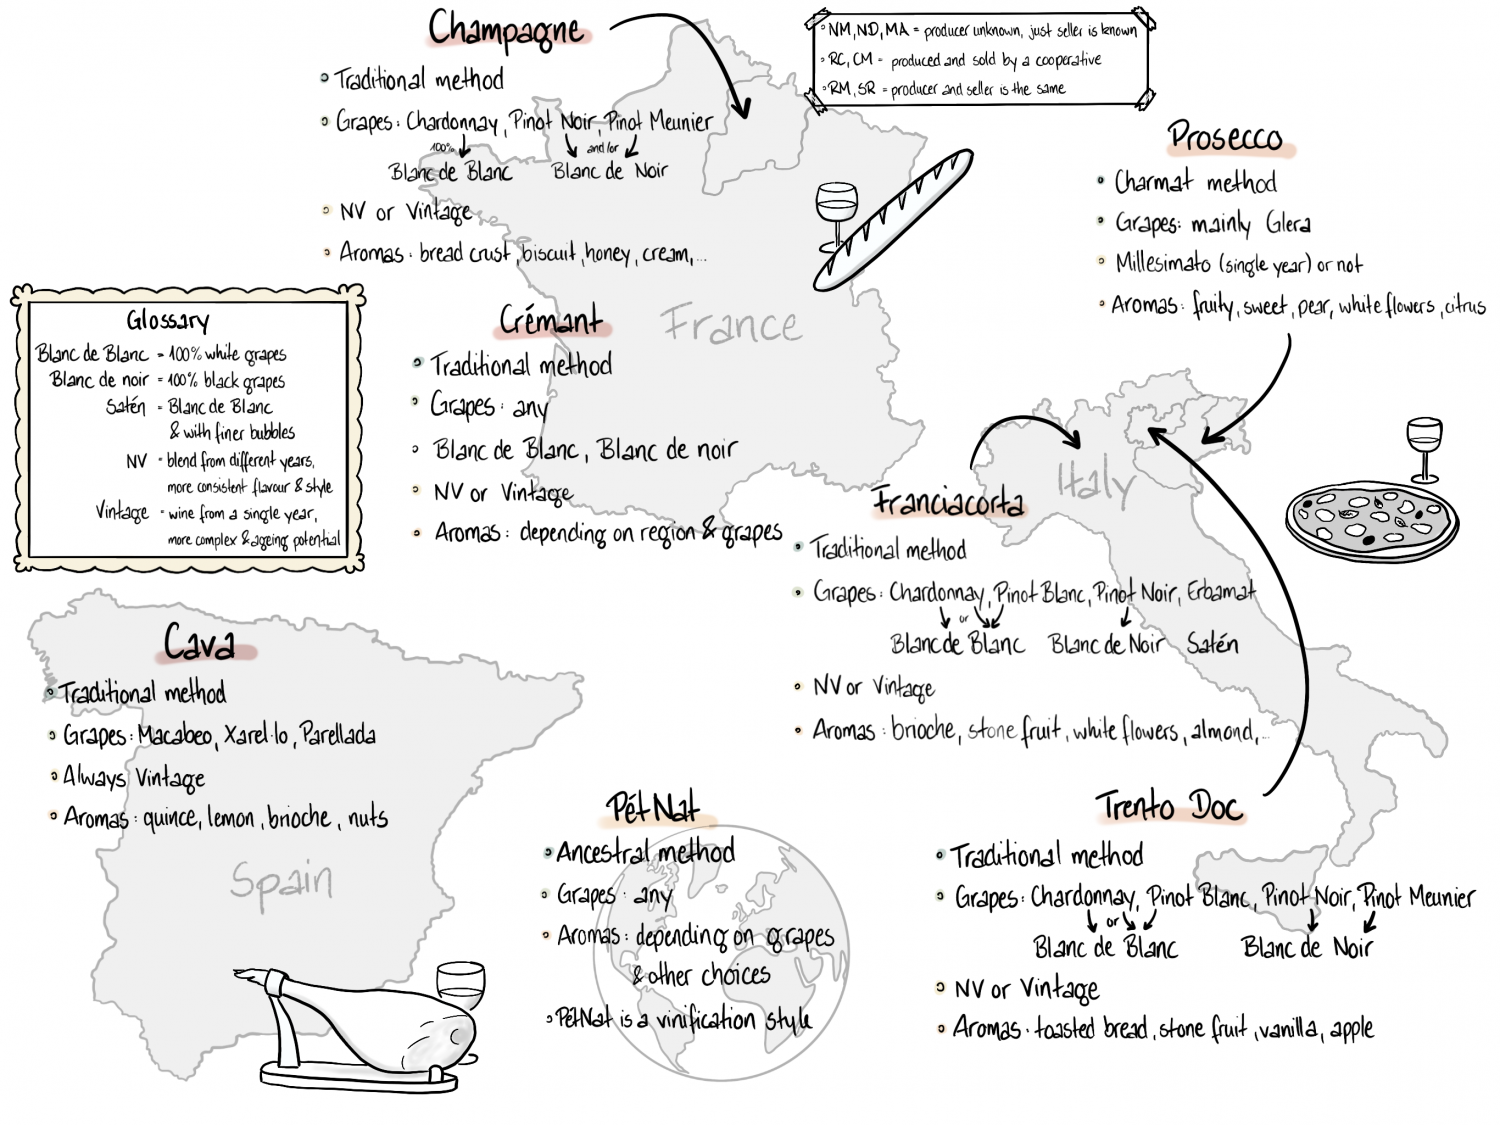 Champagne
• Traditional method
• Grapes: Chardonnay, Pinot Noir, Pinot Meunier
100% and/or
Blanc de Blanc Blanc de Noir
• NV or Vintage
• Aromas: bread crust, biscuit, honey, cream,...
• NM, ND, MA = producer unknown, just seller is known
• RC, CM = produced and sold by a cooperative
• RM, SR = producer and seller is the same
Prosecco
• Charmat method
• Grapes: mainly Glera
• Millesimato (single year) or not
• Aromas: fruity, sweet, pear, white flowers, citrus
Glossary
Blanc de Blanc = 100% white grapes
Blanc de noir = 100% black grapes
Satén = Blanc de Blanc
& with finer bubbles
NV = blend from different years,
more consistent flavour & style
Vintage = wine from a single year,
more complex & ageing potential
Crémant
• Traditional method
• Grapes: any
• Blanc de Blanc, Blanc de noir
• NV or Vintage
• Aromas: depending on region & grapes
France
Italy
Franciacorta
• Traditional method
• Grapes: Chardonnay, Pinot Blanc, Pinot Noir, Erbamat
or
Blanc de Blanc Blanc de Noir Satén
• NV or Vintage
• Aromas: brioche, stone fruit, white flowers, almond,...
Cava
• Traditional method
• Grapes: Macabeo, Xarel·lo, Parellada
• Always Vintage
• Aromas: quince, lemon, brioche, nuts
Spain
PétNat
• Ancestral method
• Grapes: any
• Aromas: depending on grapes
& other choices
• PétNat is a vinification style
Trento Doc
• Traditional method
• Grapes: Chardonnay, Pinot Blanc, Pinot Noir, Pinot Meunier
or
Blanc de Blanc Blanc de Noir
• NV or Vintage
• Aromas: toasted bread, stone fruit, vanilla, apple